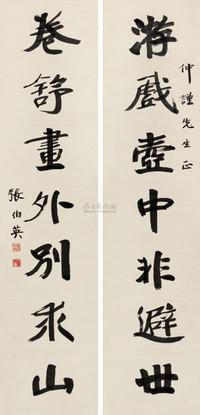 游戲壺中非避世
仲謹先生正
卷舒畫外別求山
張伯英